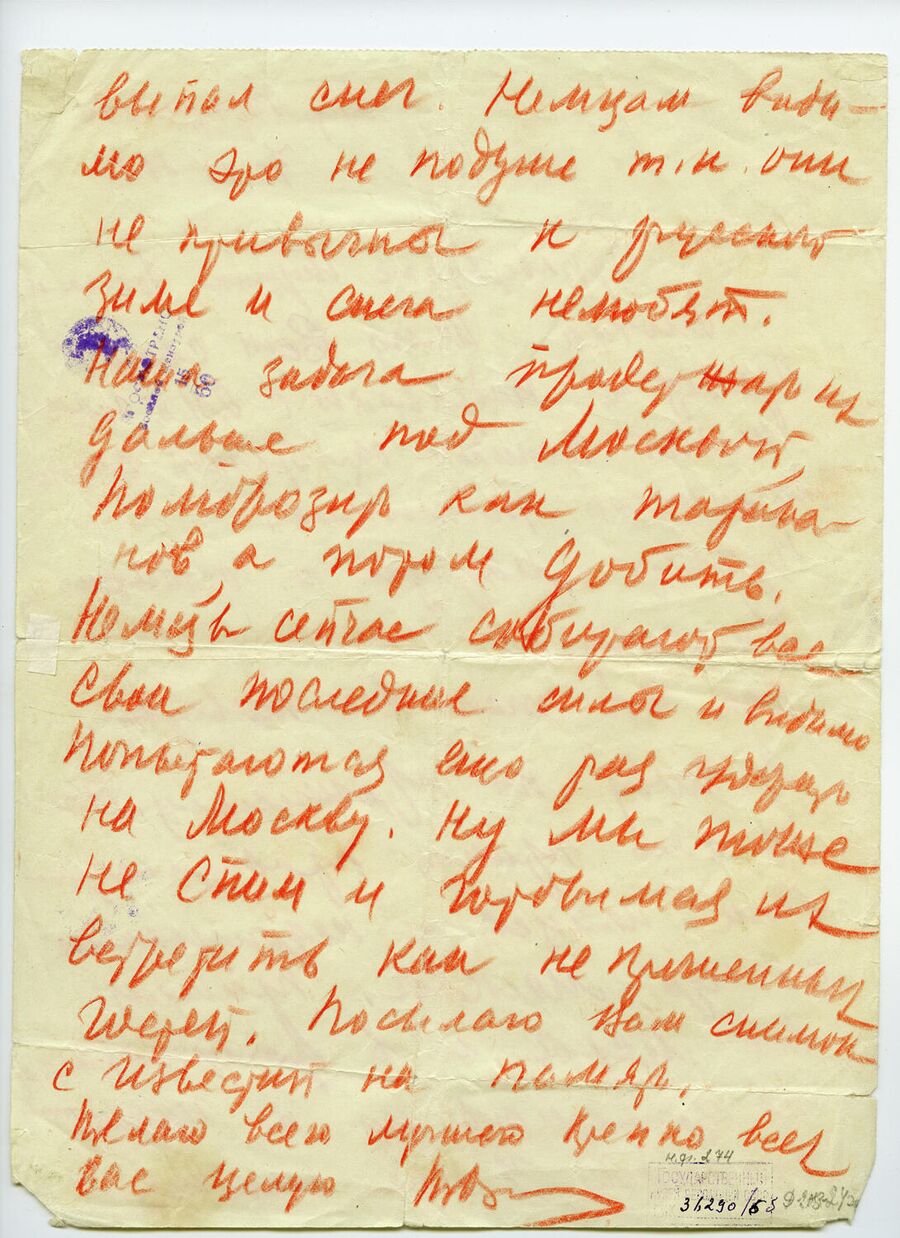 выпал снег. Немцам види-
мо это не подуше т.к. они
не привычны к русской
зиме и снега нелюбят.
Наша задача продержат их
дальше под Москвой,
поморозить как таракa-
нов, а потом добить.
Немцы сейчас собирают все
свои последние силы и видимо
попытаются еще раз ударить
на Москву. Ну мы тоже
не спим и готовимся их
встретить как не прошенных
гостей. Посылаю Вам снимок
с известий на память.
Желаю всего лучшего Крепко всех
вас целую
н.ф. 274
ГОСУДАРСТВЕННЫЙ
31290/58